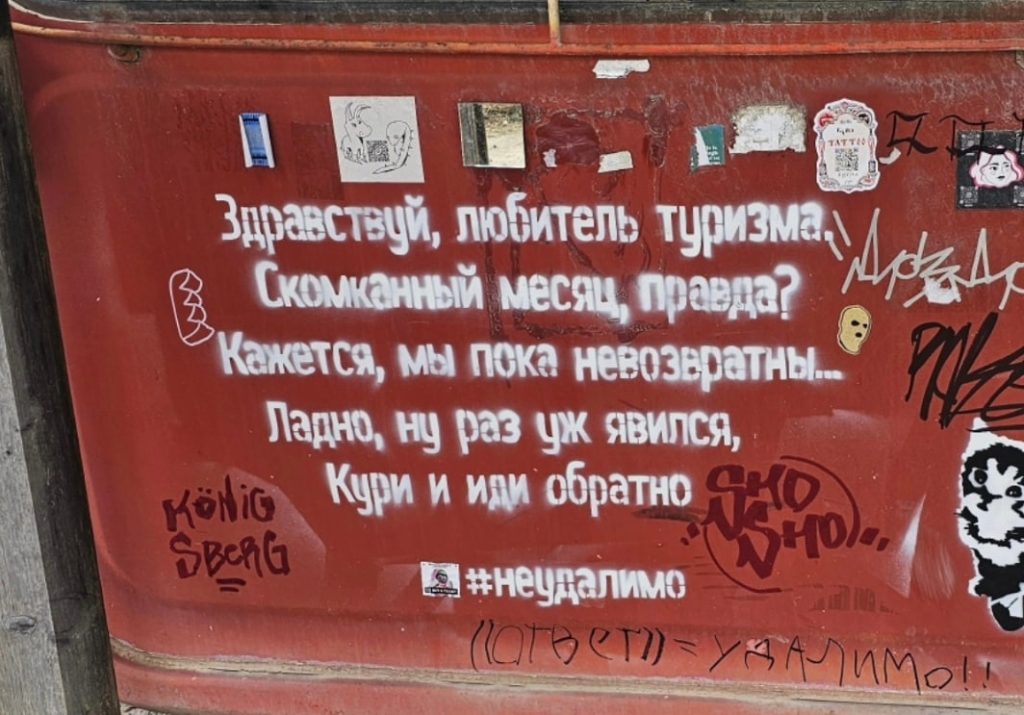 TATTOO
Здравствуй, любитель туризма.
Скомканный месяц, правда?
Кажется, мы пока невозвратны...
Ладно, ну раз уж явился,
Кури и иди обратно
KÖNIG
SBERG
SHO
SHO
#неудалимо
((ОТВЕТ))=УДАЛИМО!!